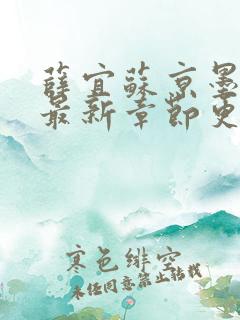 薛宜蘇京墨
最新章節更
寒色緋空
未经同意禁止转载